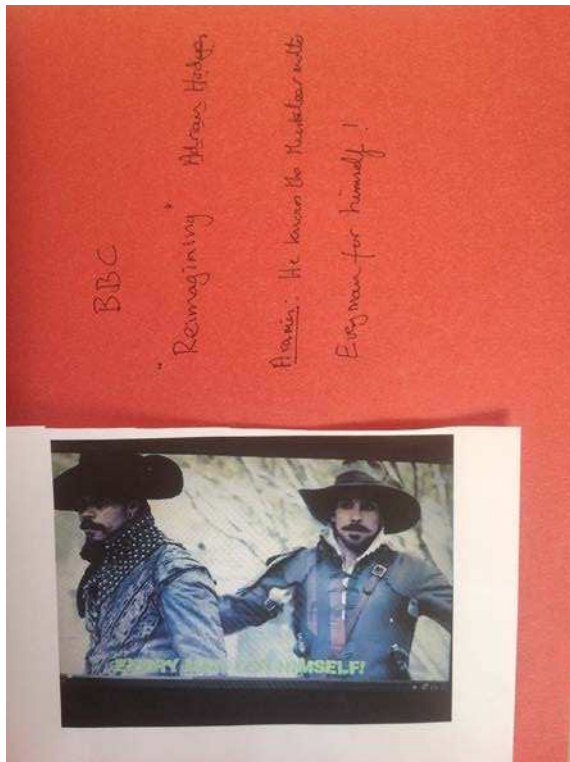 BBC
"Reimagining" Adrian Hodges
Aramis: He knows the Musketeer motto
Every man for himself!
EVERY MAN FOR HIMSELF!